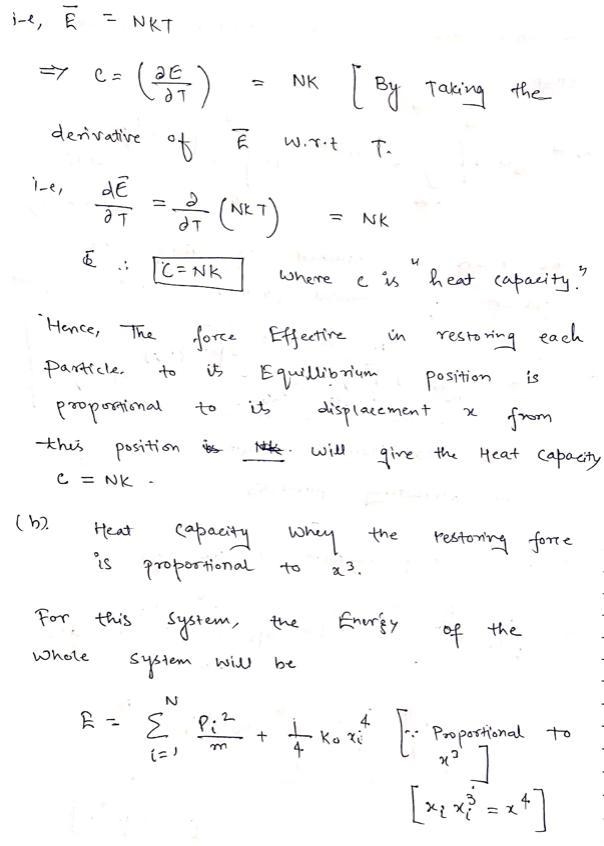 i-e, Ē = NKT
=> C = (∂E/∂T) = NK [ By Taking the
derivative of Ē w.r.t T.
i-e, dĒ/∂T = ∂/∂T (NKT) = NK
∴ C = NK where c is "heat capacity."
Hence, The force Effective in restoring each
Particle. to its Equillibrium position is
proportional to its displacement x from
this position is NK. will give the Heat capacity
C = NK .
(b). Heat capacity Whey the restoring force
is proportional to x³.
For this system, the Energy of the
whole system will be
E = Σ_{i=1}^{N} Pi²/m + 1/4 K₀ xi⁴ [∵ Proportional to
x³ ]
[xi xi³ = x⁴]